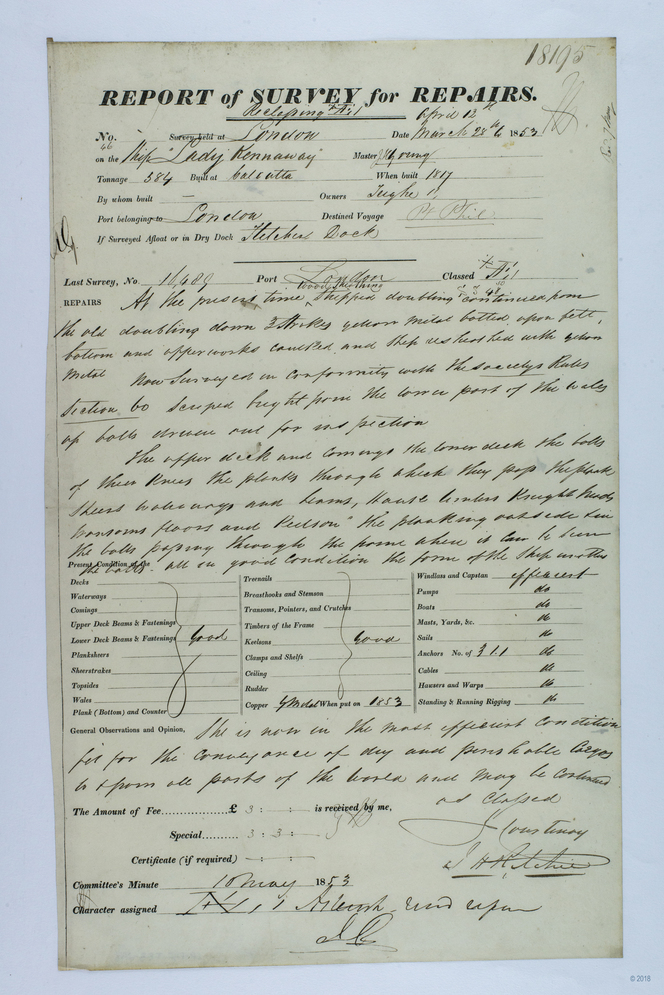 18195
REPORT of SURVEY for REPAIRS.
Keeping A1
April 12th
No. 66 Survey held at London Date March 28th 1853
on the Ship "Lady Kennaway" Master Young
Tonnage 384 Built at Calcutta When built 1817
By whom built — Owners Teighe
Port belonging to London Destined Voyage Pt Phil
If Surveyed Afloat or in Dry Dock Fletchers Dock
Last Survey, No. 16,489 Port London Classed A1
Wood Sheathing
REPAIRS At the present time, stripped doubling continued from
the old doubling down 2 Strikes yellow metal bolted upon felt,
bottom and upperworks caulked and Ship resheathed with yellow
Metal Now Surveyed in conformity with the Societys Rules
Section 60 scraped bright from the lower part of the wales
up bolts driven out for inspection
The upper deck and Comings the lower deck the bolts
of their Knees the planks through which they pass the plank
Sheers waterways and beams, Hause timbers Knight Heads
transoms floors and Keelson the planking outside &
the bolts passing through the same where it can be seen
all in good condition the form of the Ship
Present Condition of the
Decks
Waterways
Comings
Upper Deck Beams & Fastenings
Lower Deck Beams & Fastenings Good
Planksheers
Sheerstrakes
Topsides
Wales
Plank (Bottom) and Counter
Treenails
Breasthooks and Stemson
Transoms, Pointers, and Crutches
Timbers of the Frame
Keelsons Good
Clamps and Shelfs
Ceiling
Rudder
Copper Y Metal When put on 1853
Windlass and Capstan efficient
Pumps do
Boats do
Masts, Yards, &c. do
Sails do
Anchors No. of 3 1 1 do
Cables do
Hawsers and Warps do
Standing & Running Rigging do
General Observations and Opinion, She is now in the most efficient condition
fit for the conveyance of dry and perishable Cargos
to & from all parts of the world and may be continued
as classed
The Amount of Fee £ 3 : - : - is received by me,
Special 3 : 3 : -
Certificate (if required) - : - : -
J Courtenay
& J H Ritchie
Committee's Minute 10 May 1853
Character assigned A1
© 2018